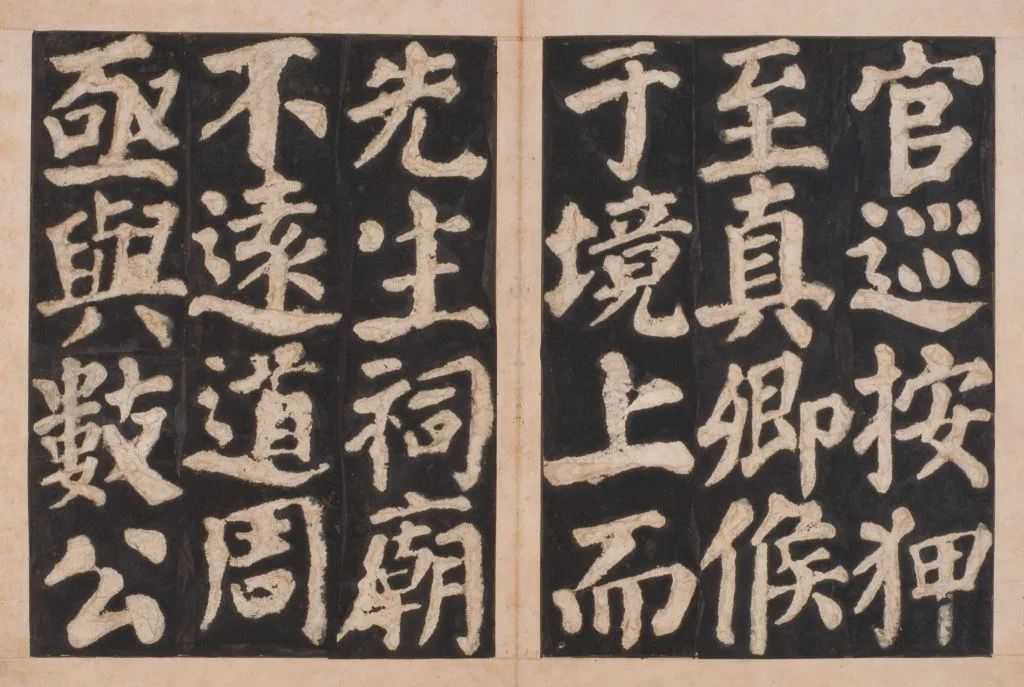 官巡按狎
至真卿候
于境上而
先生祠廟
不遠道周
亟與數公